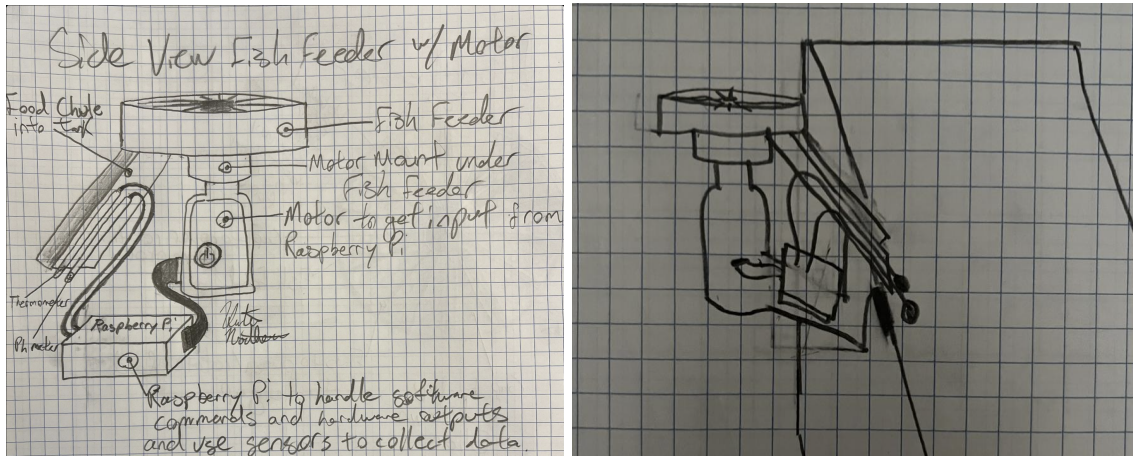 Side View Fish Feeder w/ Motor
Food Chute
into tank
Fish Feeder
Motor Mount under
Fish Feeder
Motor to get input from
Raspberry Pi
Thermometer
Ph meter
Raspberry Pi
Raspberry Pi to handle software
commands and hardware outputs
and use sensors to collect data.